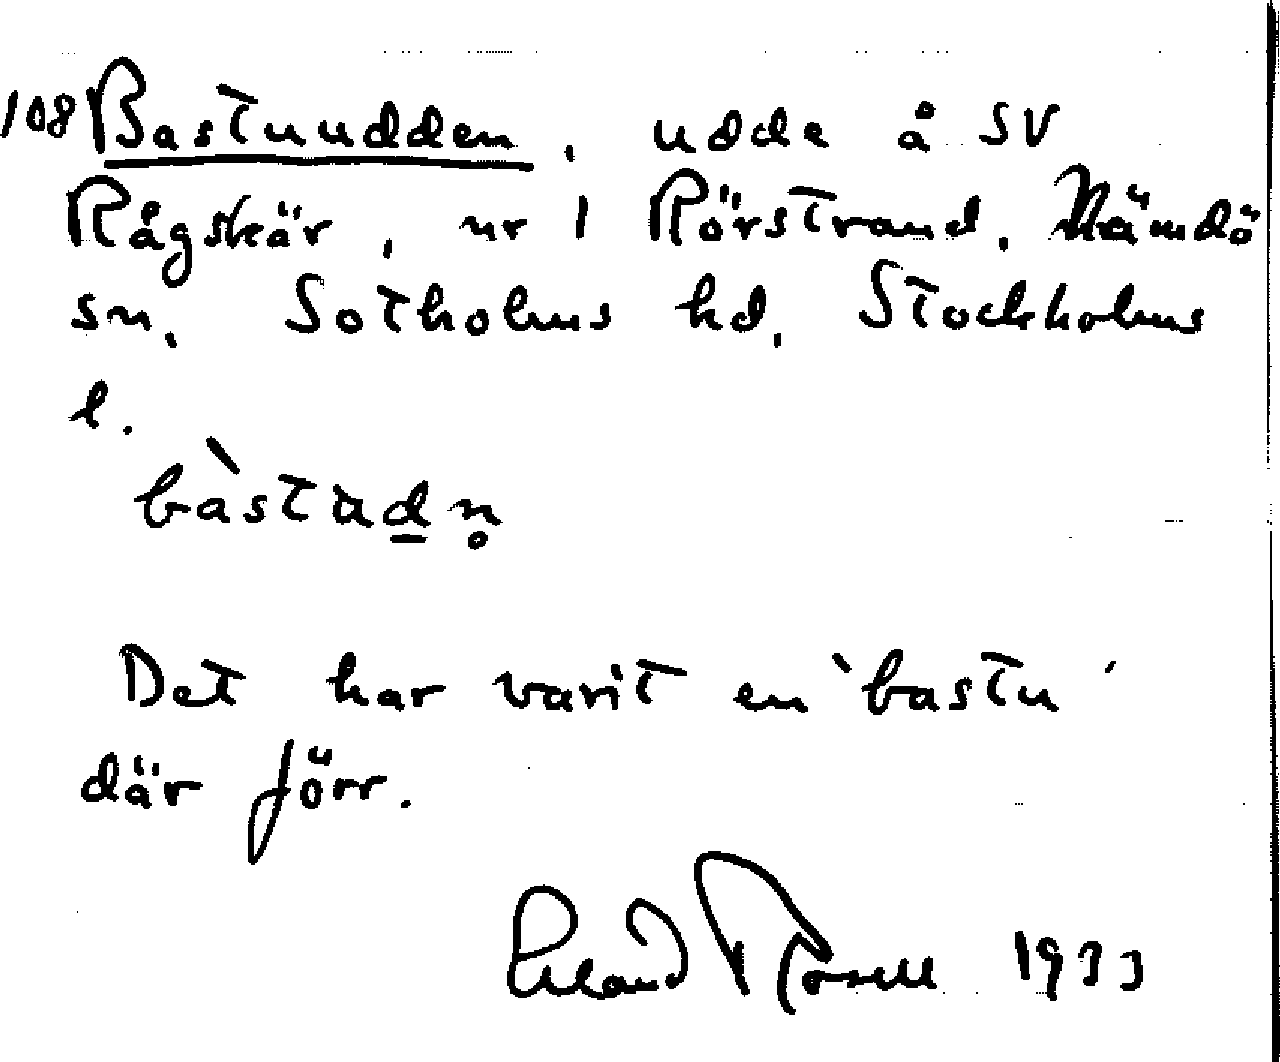 108 Bastuudden, udde å SV
Rågskär, nr 1 Rörstrand, Nämdö
sn, Sotholms hd, Stockholms
l.
bàstùdn̥
Det har varit en `bastu´
där förr.
Erland Rosell 1933